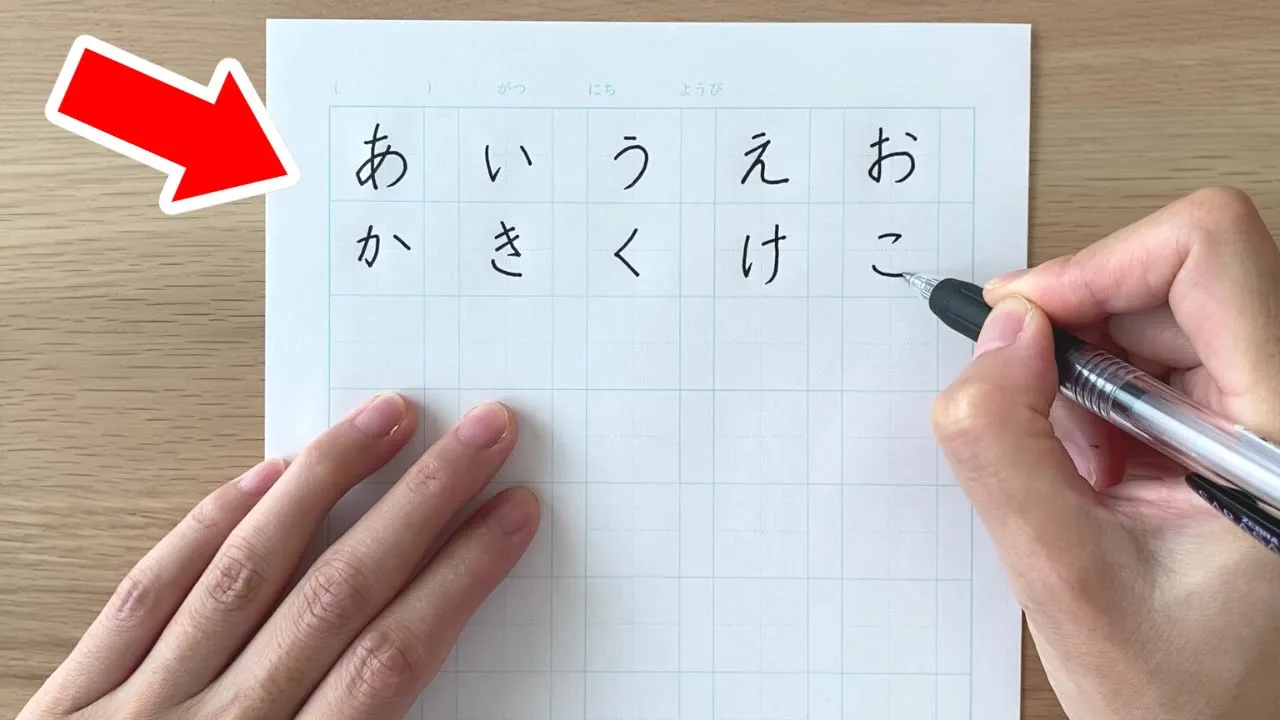 ( ) がつ にち ようび
あ い う え お
か き く け こ
ZEBRA